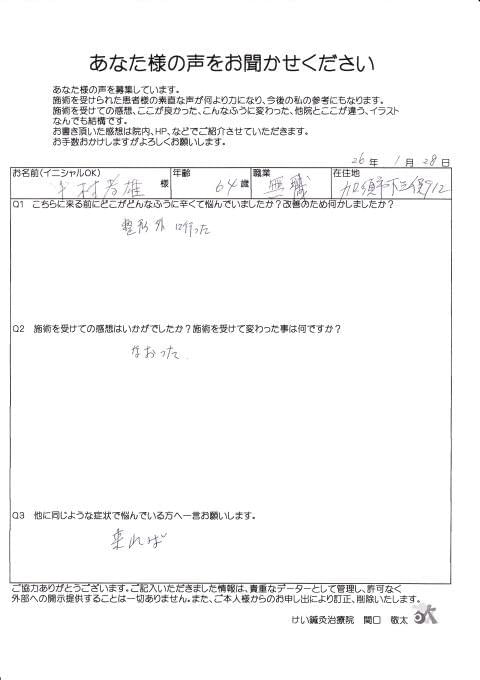 あなた様の声をお聞かせください
あなた様の声を募集しています。
施術を受けられた患者様の素直な声が何より力になり、今後の私の参考にもなります。
施術を受けての感想、ここが良かった、こんなふうに変わった、他院とここが違う、イラスト
なんでも結構です。
お書き頂いた感想は院内、HP、などでご紹介させていただきます。
お手数おかけしますがよろしくお願いします。
26年 1月 28日
お名前(イニシャルOK) 年齢 職業 在住地
村孝雄 様 64歳 無職 加須市下三俣712
Q1 こちらに来る前にどこがどんなふうに辛くて悩んでいましたか?改善のため何かしましたか?
整形外 に行った
Q2 施術を受けての感想はいかがでしたか?施術を受けて変わった事は何ですか?
なおった
Q3 他に同じような症状で悩んでいる方へ一言お願いします。
来れば
ご協力ありがとうございます。ご記入いただきました情報は、貴重なデーターとして管理し、許可なく
外部への開示提供することは一切ありません。また、ご本人様からのお申し出により訂正、削除いたします。
けい鍼灸治療院 関口 敬太